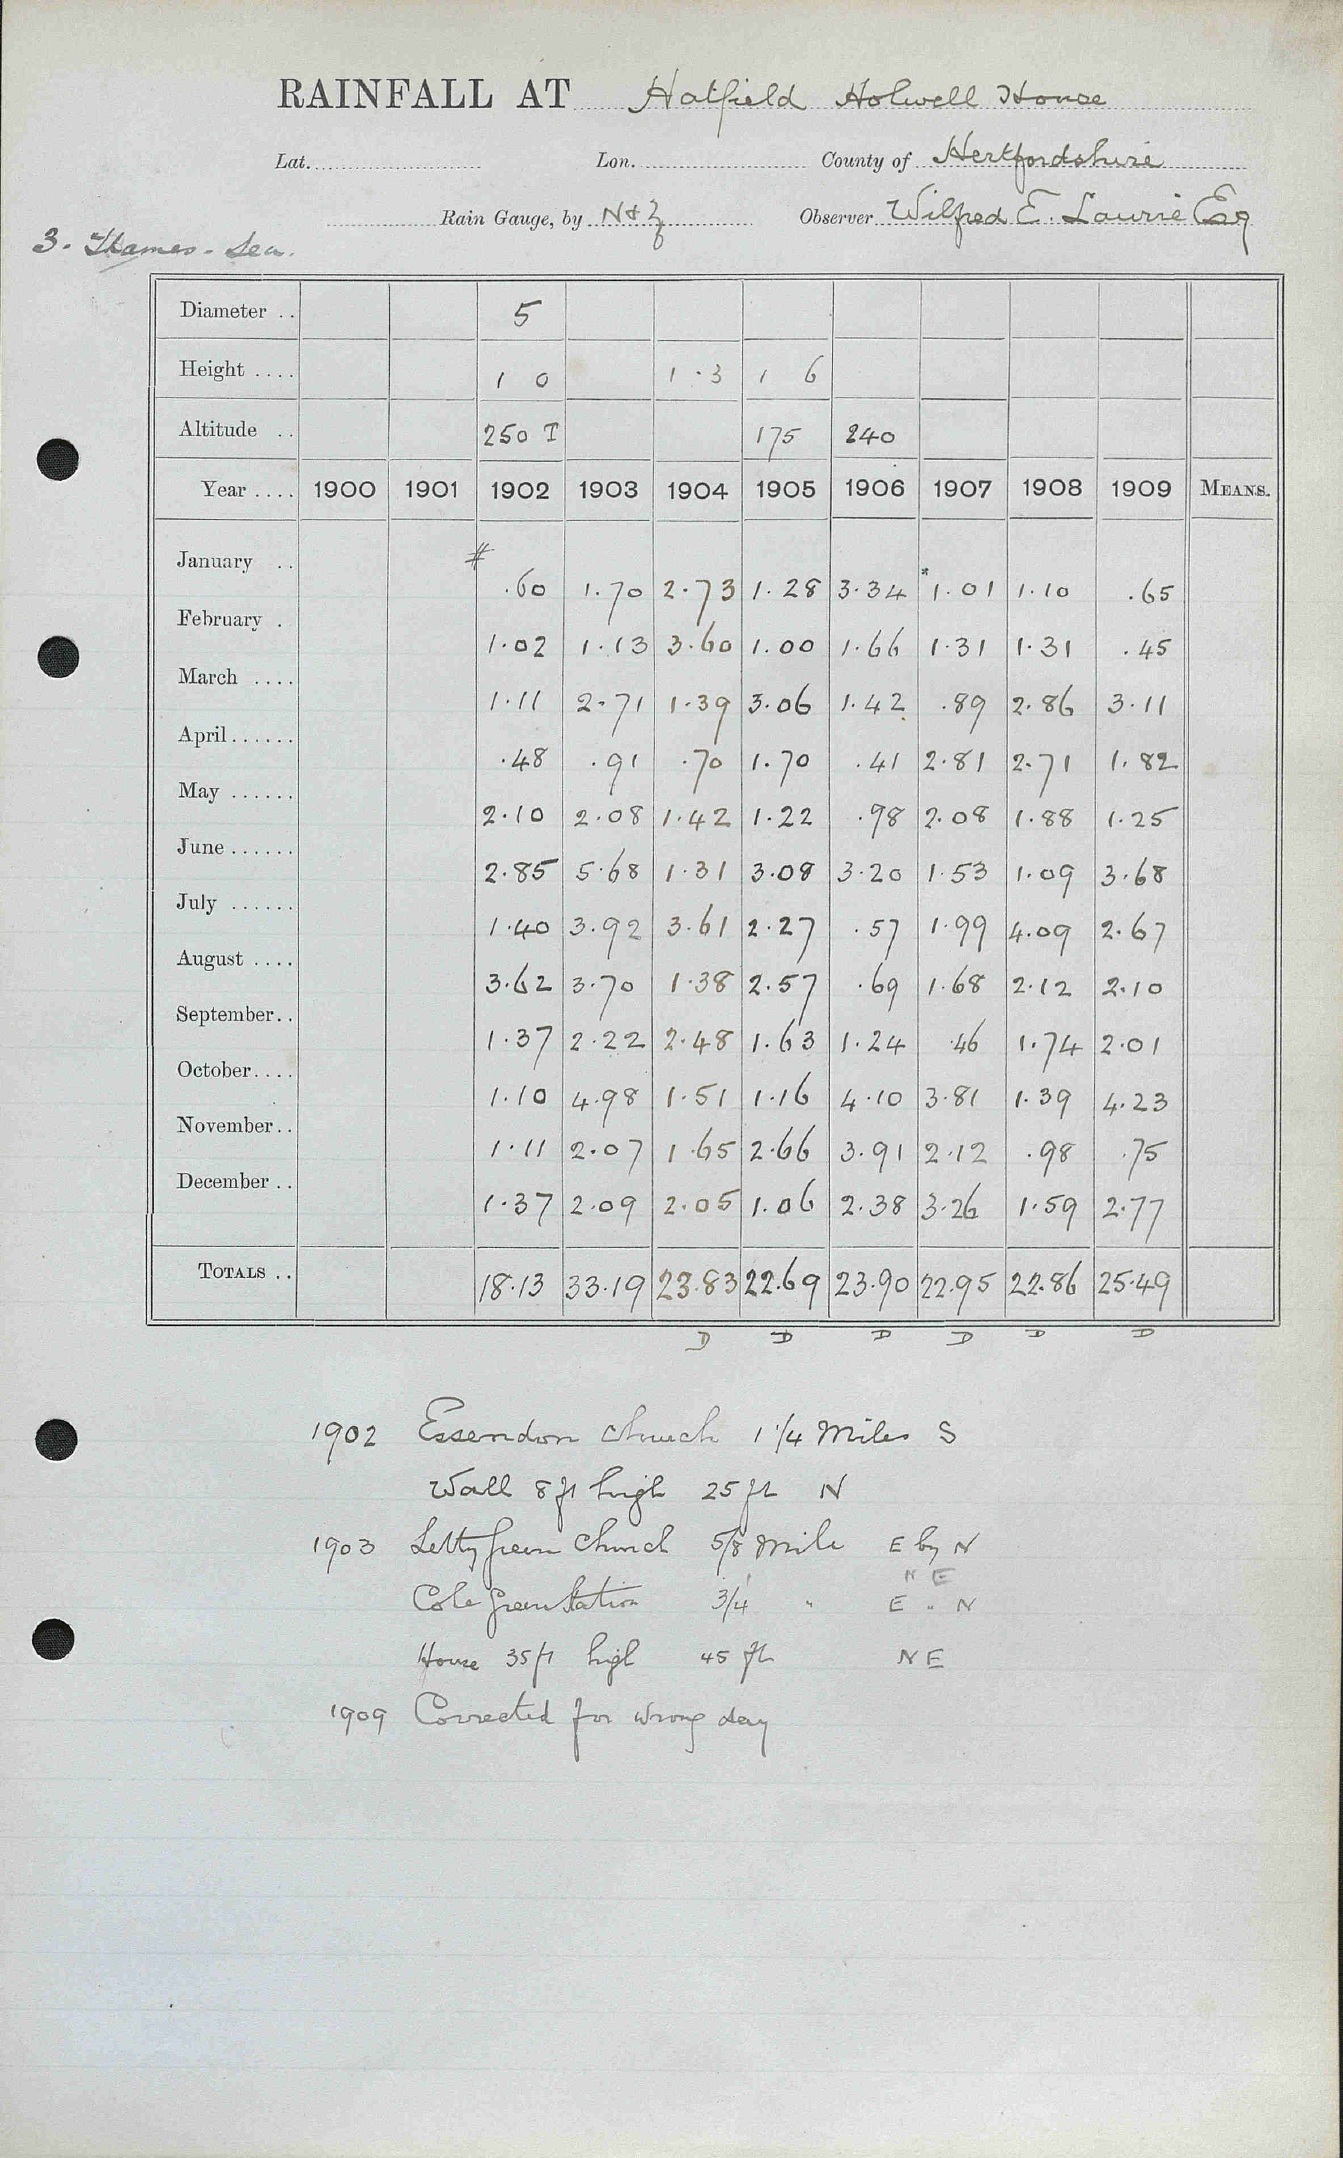 RAINFALL AT Hatfield Holwell House
Lat. Lon. County of Hertfordshire
Rain Gauge, by N & Z Observer Wilfred E. Laurie Esq
3. Thames - Sea.
Diameter .. 5
Height .... 1 0 1.3 1 6
Altitude .. 250 T 175 240
Year .... 1900 1901 1902 1903 1904 1905 1906 1907 1908 1909 MEANS.
#
January .. .60 1.70 2.73 1.28 3.34 *1.01 1.10 .65
February . 1.02 1.13 3.60 1.00 1.66 1.31 1.31 .45
March .... 1.11 2.71 1.39 3.06 1.42 .89 2.86 3.11
April ...... .48 .91 .70 1.70 .41 2.81 2.71 1.82
May ...... 2.10 2.08 1.42 1.22 .98 2.08 1.88 1.25
June ...... 2.85 5.68 1.31 3.08 3.20 1.53 1.09 3.68
July ...... 1.40 3.92 3.61 2.27 .57 1.99 4.09 2.67
August .... 3.62 3.70 1.38 2.57 .69 1.68 2.12 2.10
September.. 1.37 2.22 2.48 1.63 1.24 .46 1.74 2.01
October.... 1.10 4.98 1.51 1.16 4.10 3.81 1.39 4.23
November.. 1.11 2.07 1.65 2.66 3.91 2.12 .98 .75
December .. 1.37 2.09 2.05 1.06 2.38 3.26 1.59 2.77
TOTALS .. 18.13 33.19 23.83 22.69 23.90 22.95 22.86 25.49
D D D D D D
1902 Essendon Church 1 1/4 Miles S
Wall 8 ft high 25 ft N
1903 Letty Green Church 5/8 Mile E by N
N E
Cole Green Station 3/4 " E " N
House 35 ft high 45 ft N E
1909 Corrected for wrong day